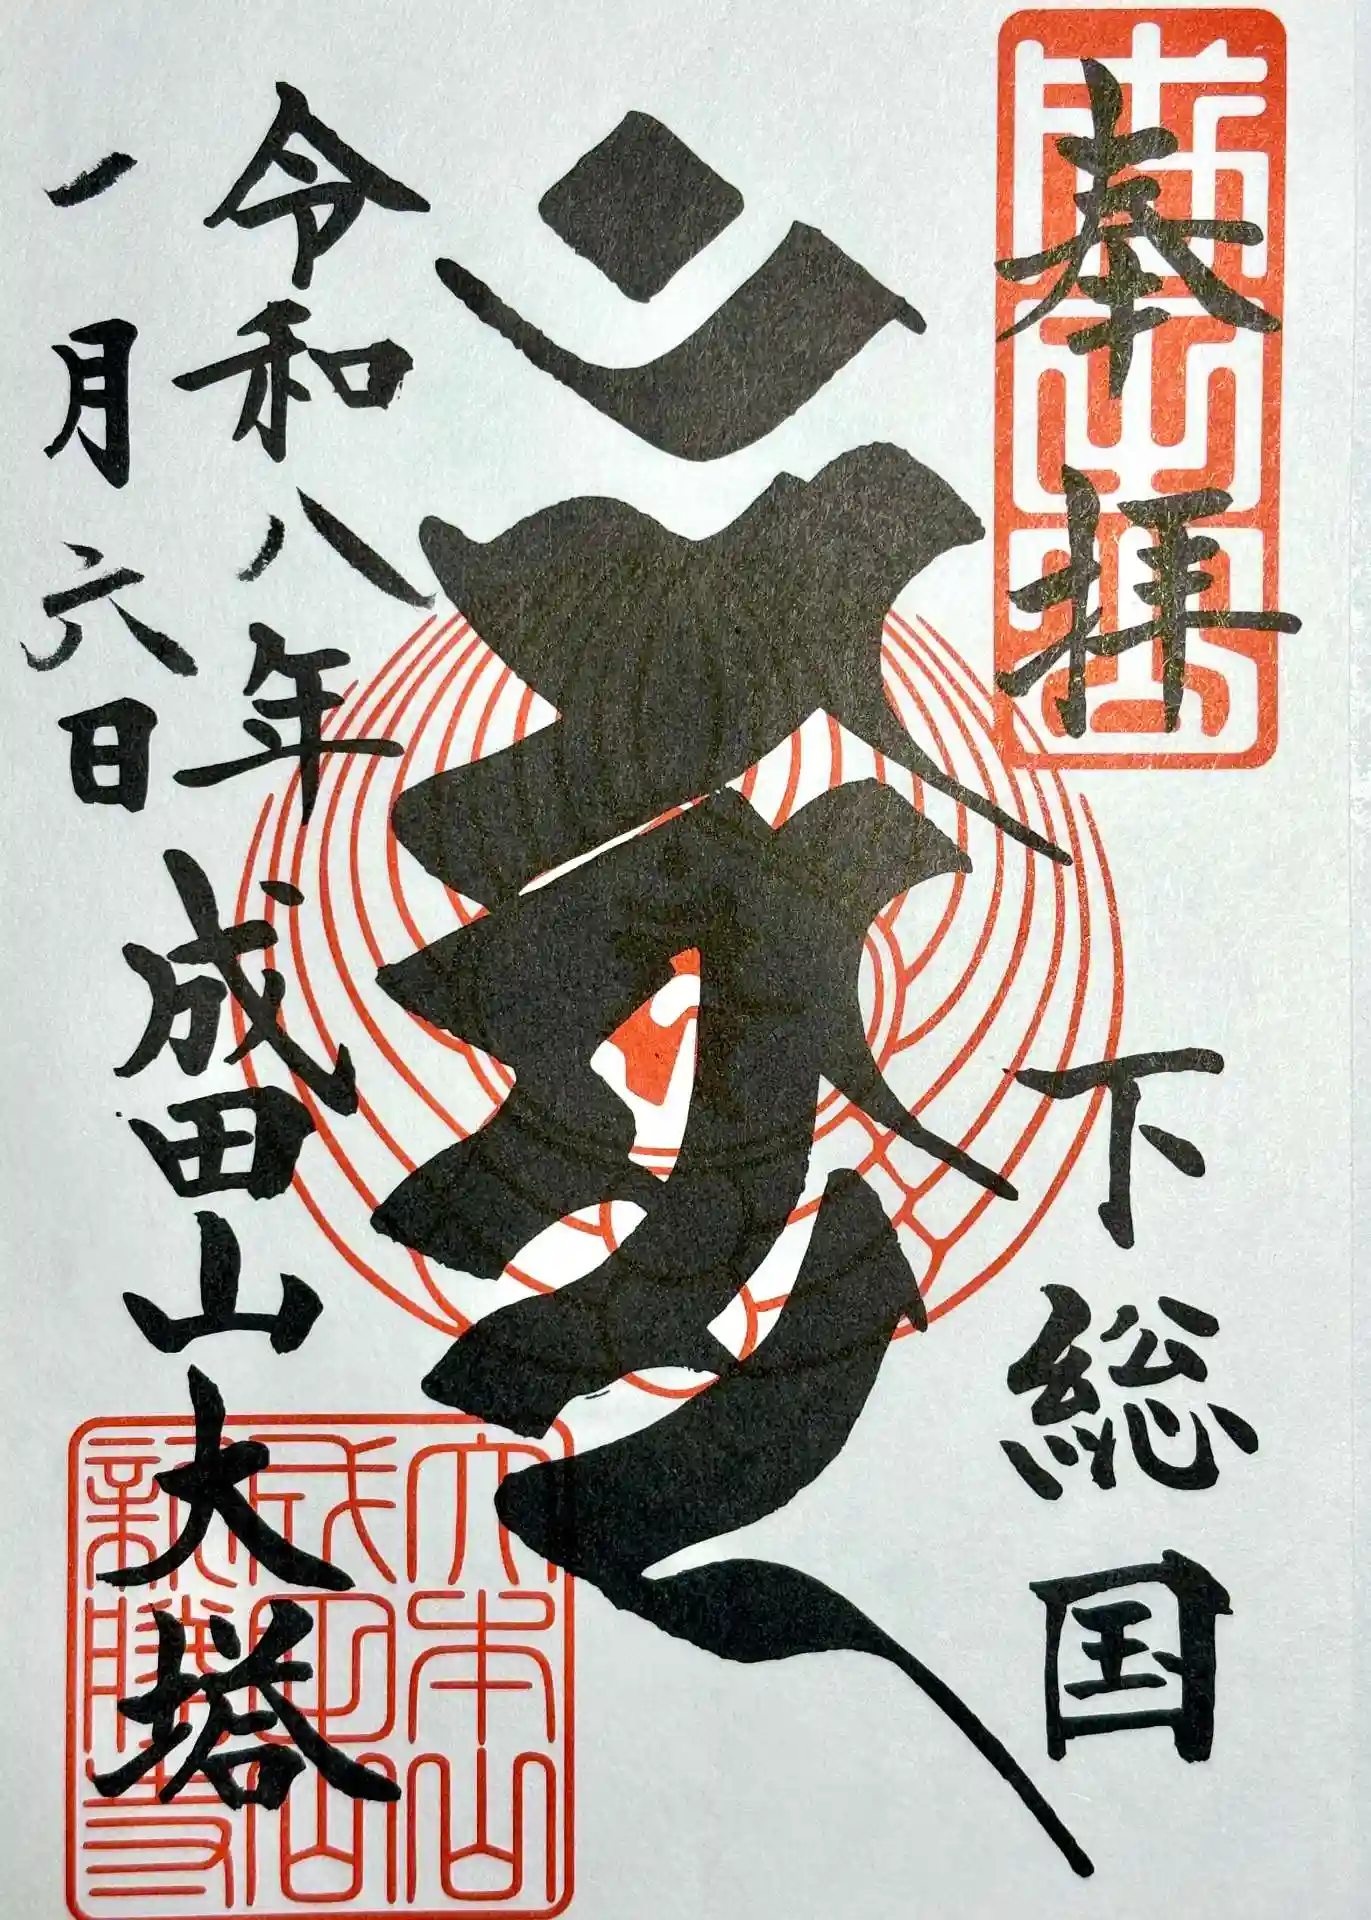 奉拝
下総国
令和八年
一月六日
成田山大塔
大本山
成田山
新勝寺